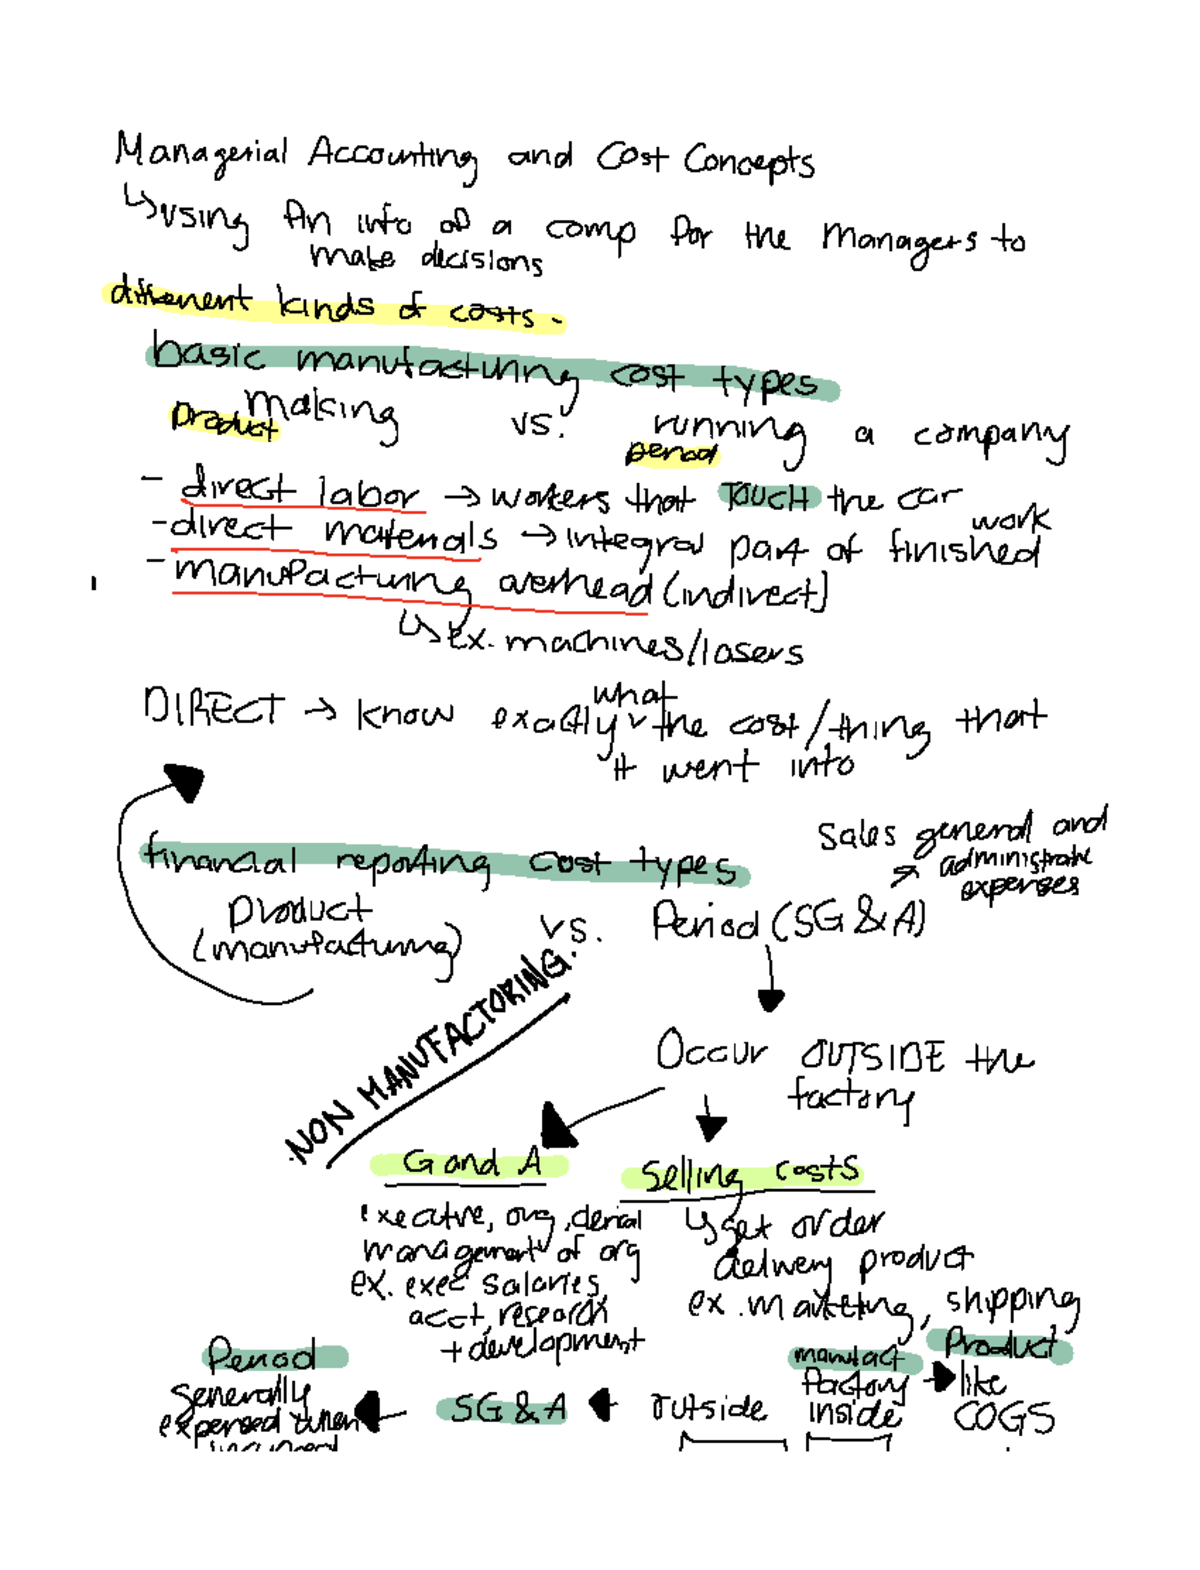 Managerial Accounting and Cost Concepts
↳ using fin info of a comp for the managers to
make decisions
different kinds of costs -
basic manufacturing cost types
making vs. running a company
product period
- direct labor → workers that TOUCH the car
- direct materials → integral part of finished work
- manufacturing overhead (indirect)
↳ ex. machines/lasers
DIRECT → know exactly what the cost/thing that
it went into
Sales general and
administrate
expenses
financial reporting cost types
product vs. Period (SG & A)
(manufacturing)
NON MANUFACTORING
Occur OUTSIDE the
factory
G and A
executive, org,
management of org
ex. exec salaries,
acct, research
+ development
Selling costs
↳ get order
delivery product
ex. marketing, shipping
Period
generally
expensed when
incurred
SG & A
outside
manufact
factory
inside
Product
like
COGS